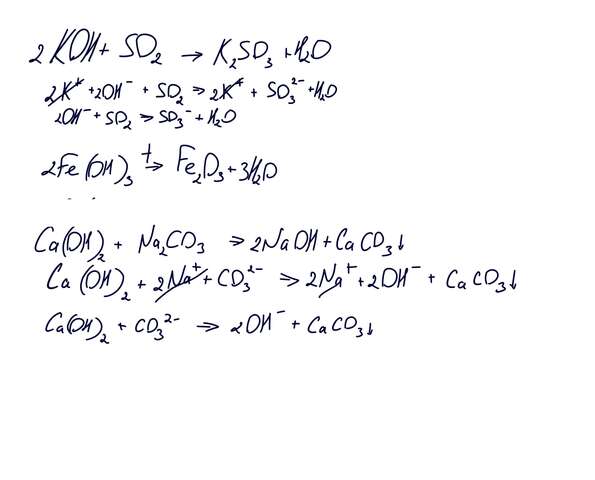 2KOH + SO₂ → K₂SO₃ + H₂O
2K⁺ + 2OH⁻ + SO₂ → 2K⁺ + SO₃²⁻ + H₂O
2OH⁻ + SO₂ → SO₃⁻ + H₂O
2Fe(OH)₃ t→ Fe₂O₃ + 3H₂O
Ca(OH)₂ + Na₂CO₃ → 2NaOH + CaCO₃↓
Ca(OH)₂ + 2Na⁺ + CO₃²⁻ → 2Na⁺ + 2OH⁻ + CaCO₃↓
Ca(OH)₂ + CO₃²⁻ → 2OH⁻ + CaCO₃↓